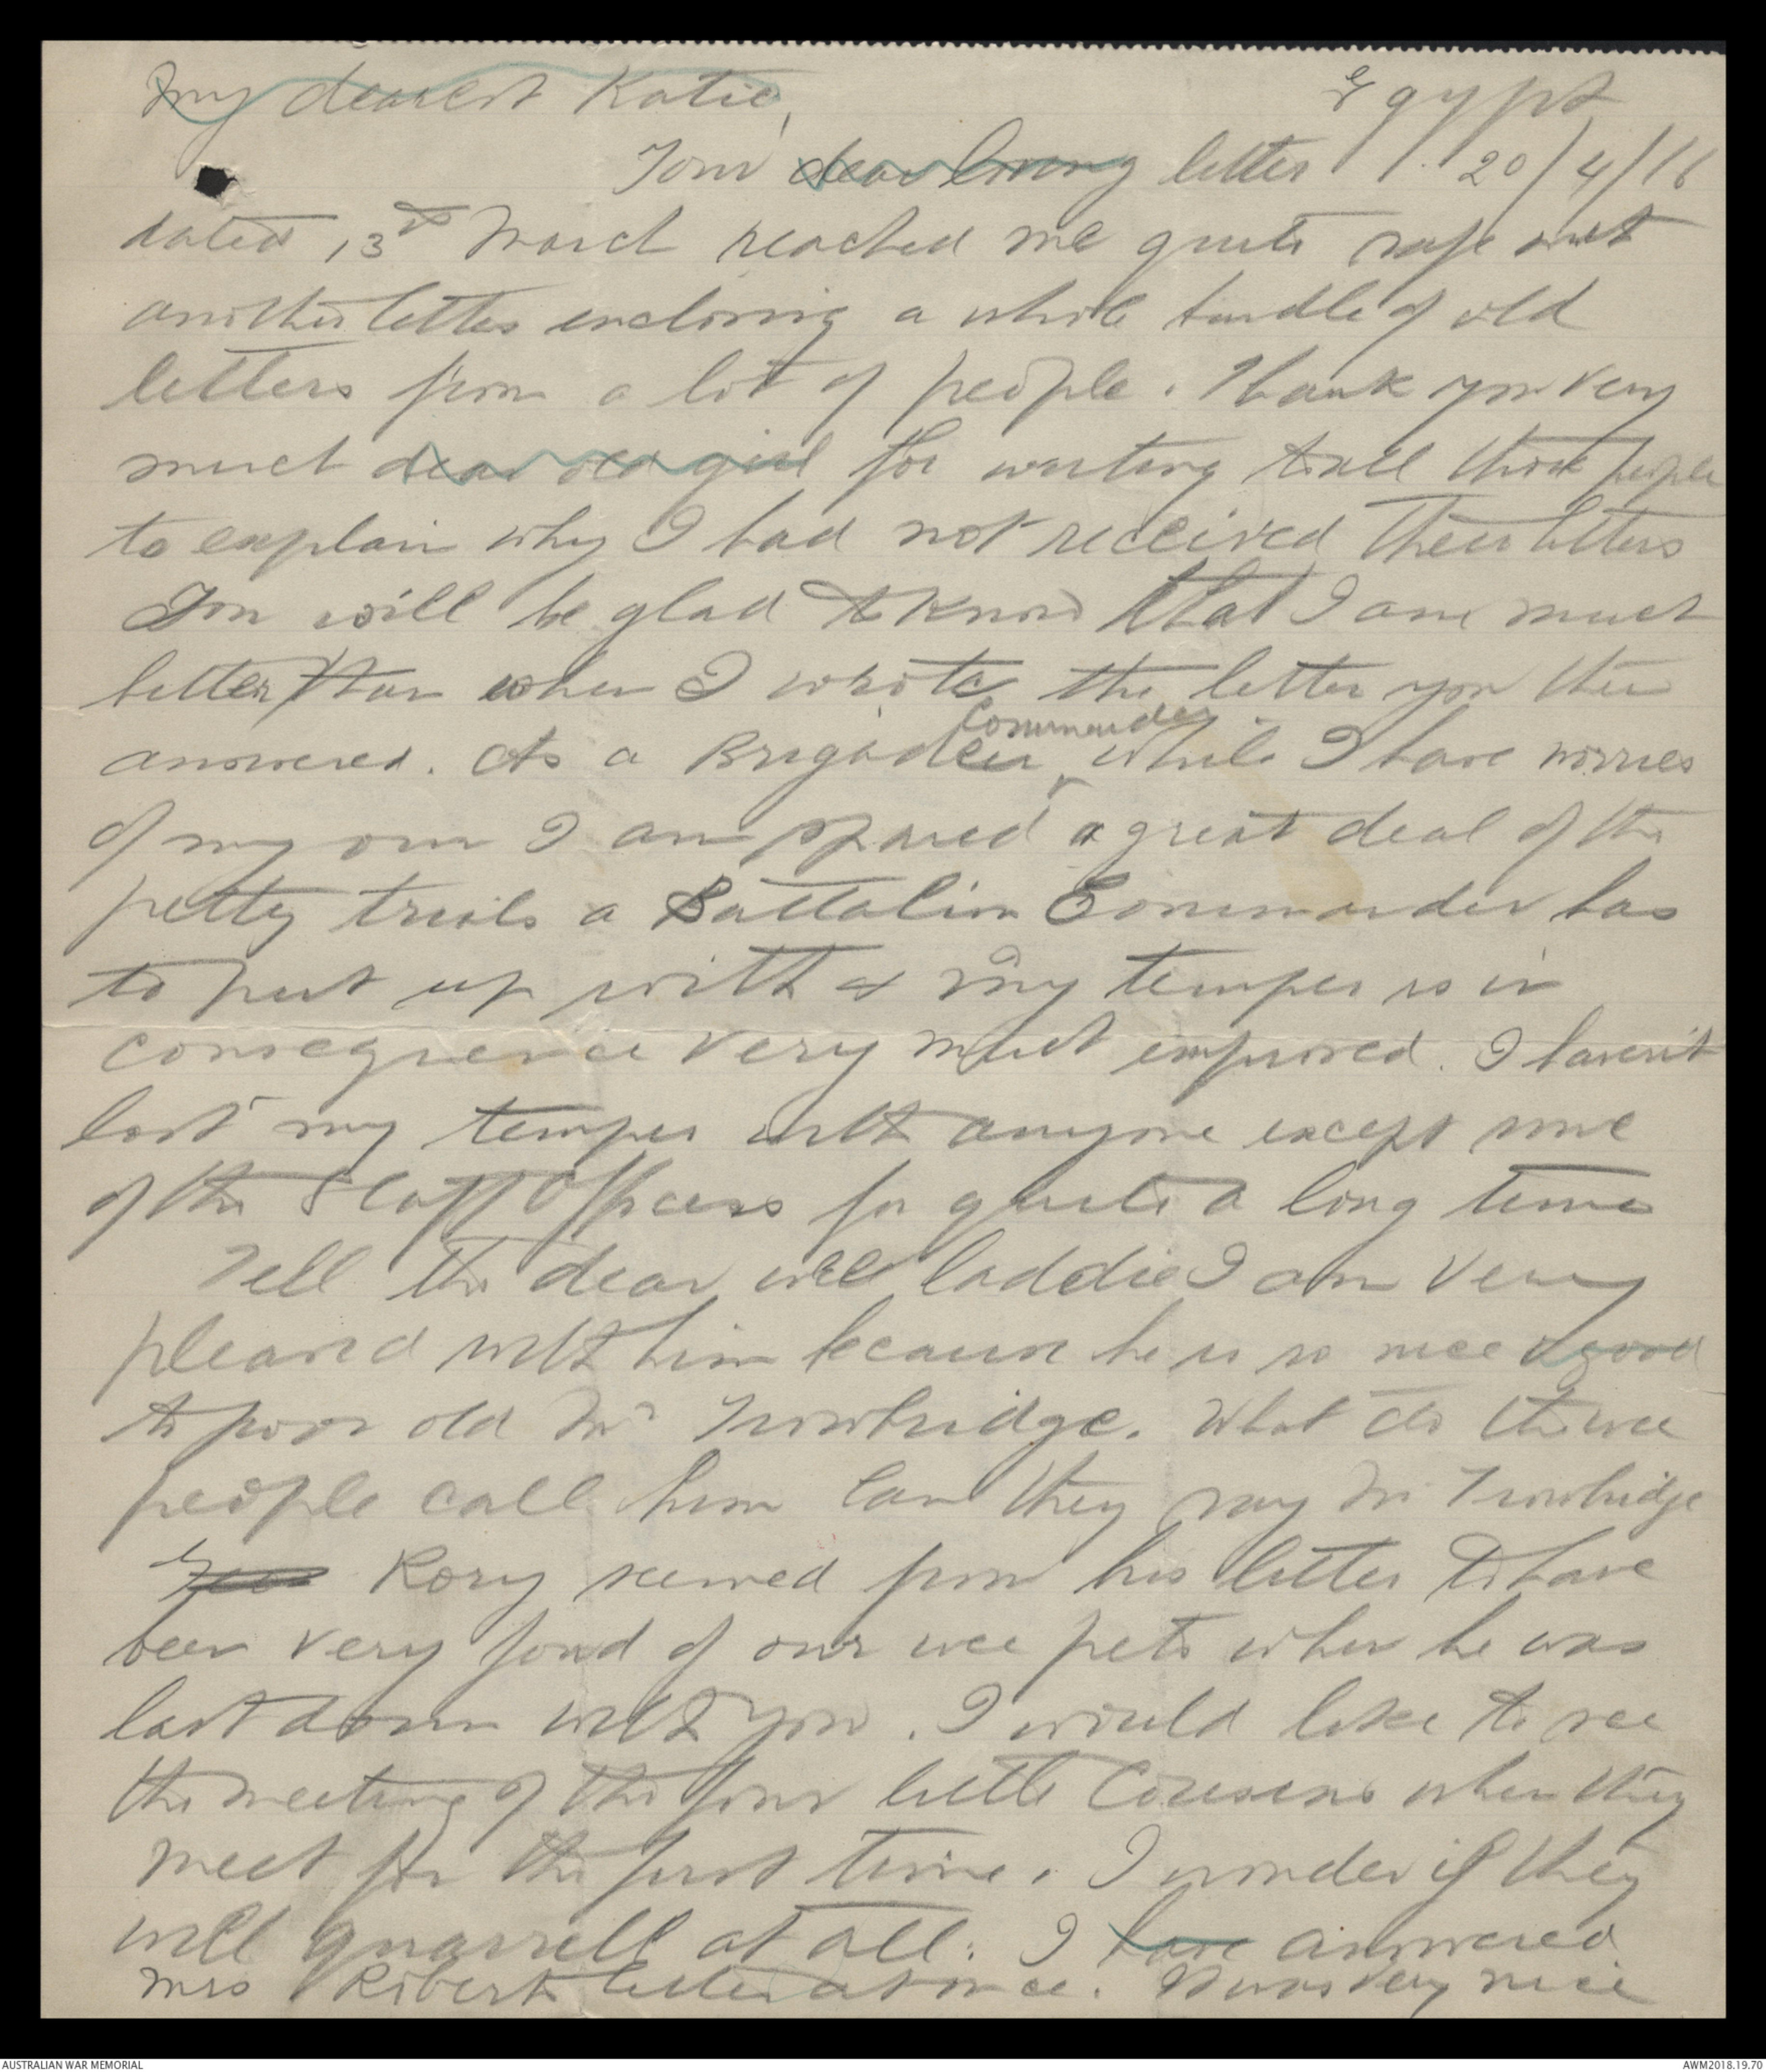 My dearest Katie,
Egypt
20/4/16
Your dear loving letter
dated 13th March reached me quite safe &
another letter enclosing a whole bundle of old
letters from a lot of people. Thank you very
much dear old girl for writing to all those people
to explain why I had not received their letters
You will be glad to know that I am much
better than when I wrote the letter you then
answered. As a Brigadier Commander while I have worries
of my own I am spared a great deal of the
petty trials a Battalion Commander has
to put up with & my temper is in
consequence very much improved. I haven't
lost my temper with anyone except some
of the Staff Officers for quite a long time
Tell the dear wee laddie I am very
pleased with him because he is so nice & good
to poor old Mr Trowbridge. What do the wee
people call him Can they say Mr Trowbridge
Rory seemed from his letter to have
been very fond of our wee pets when he was
last down with you. I would like to see
the meeting of the four little Cousens when they
meet for the first time. I wonder if they
will quarrell at all. I have answered
Mrs Roberts letter at once. It was very nice
AUSTRALIAN WAR MEMORIAL
AWM2018.19.70